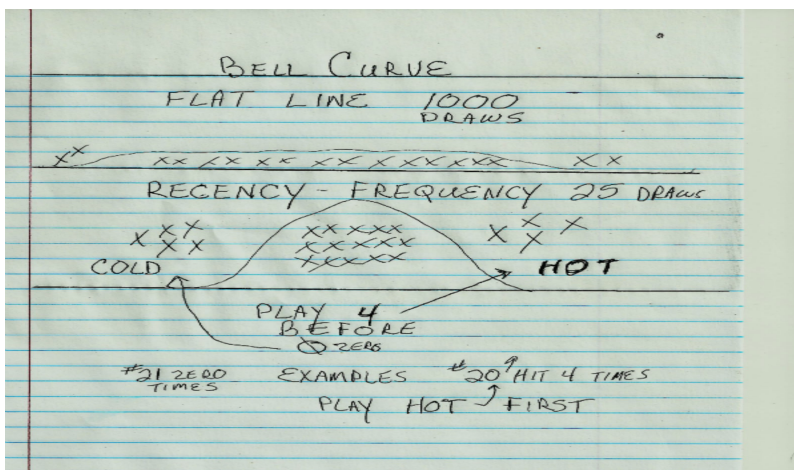 BELL CURVE
FLAT LINE 1000
DRAWS
XX XX XX XX XX X XX XXX X X
RECENCY - FREQUENCY 25 DRAWS
X X X X XXXXX X X
X X X XXXXX X X
COLD XXXXX HOT
PLAY 4
BEFORE
0 ZERO
#21 ZERO EXAMPLES #20 HIT 4 TIMES
TIMES
PLAY HOT FIRST